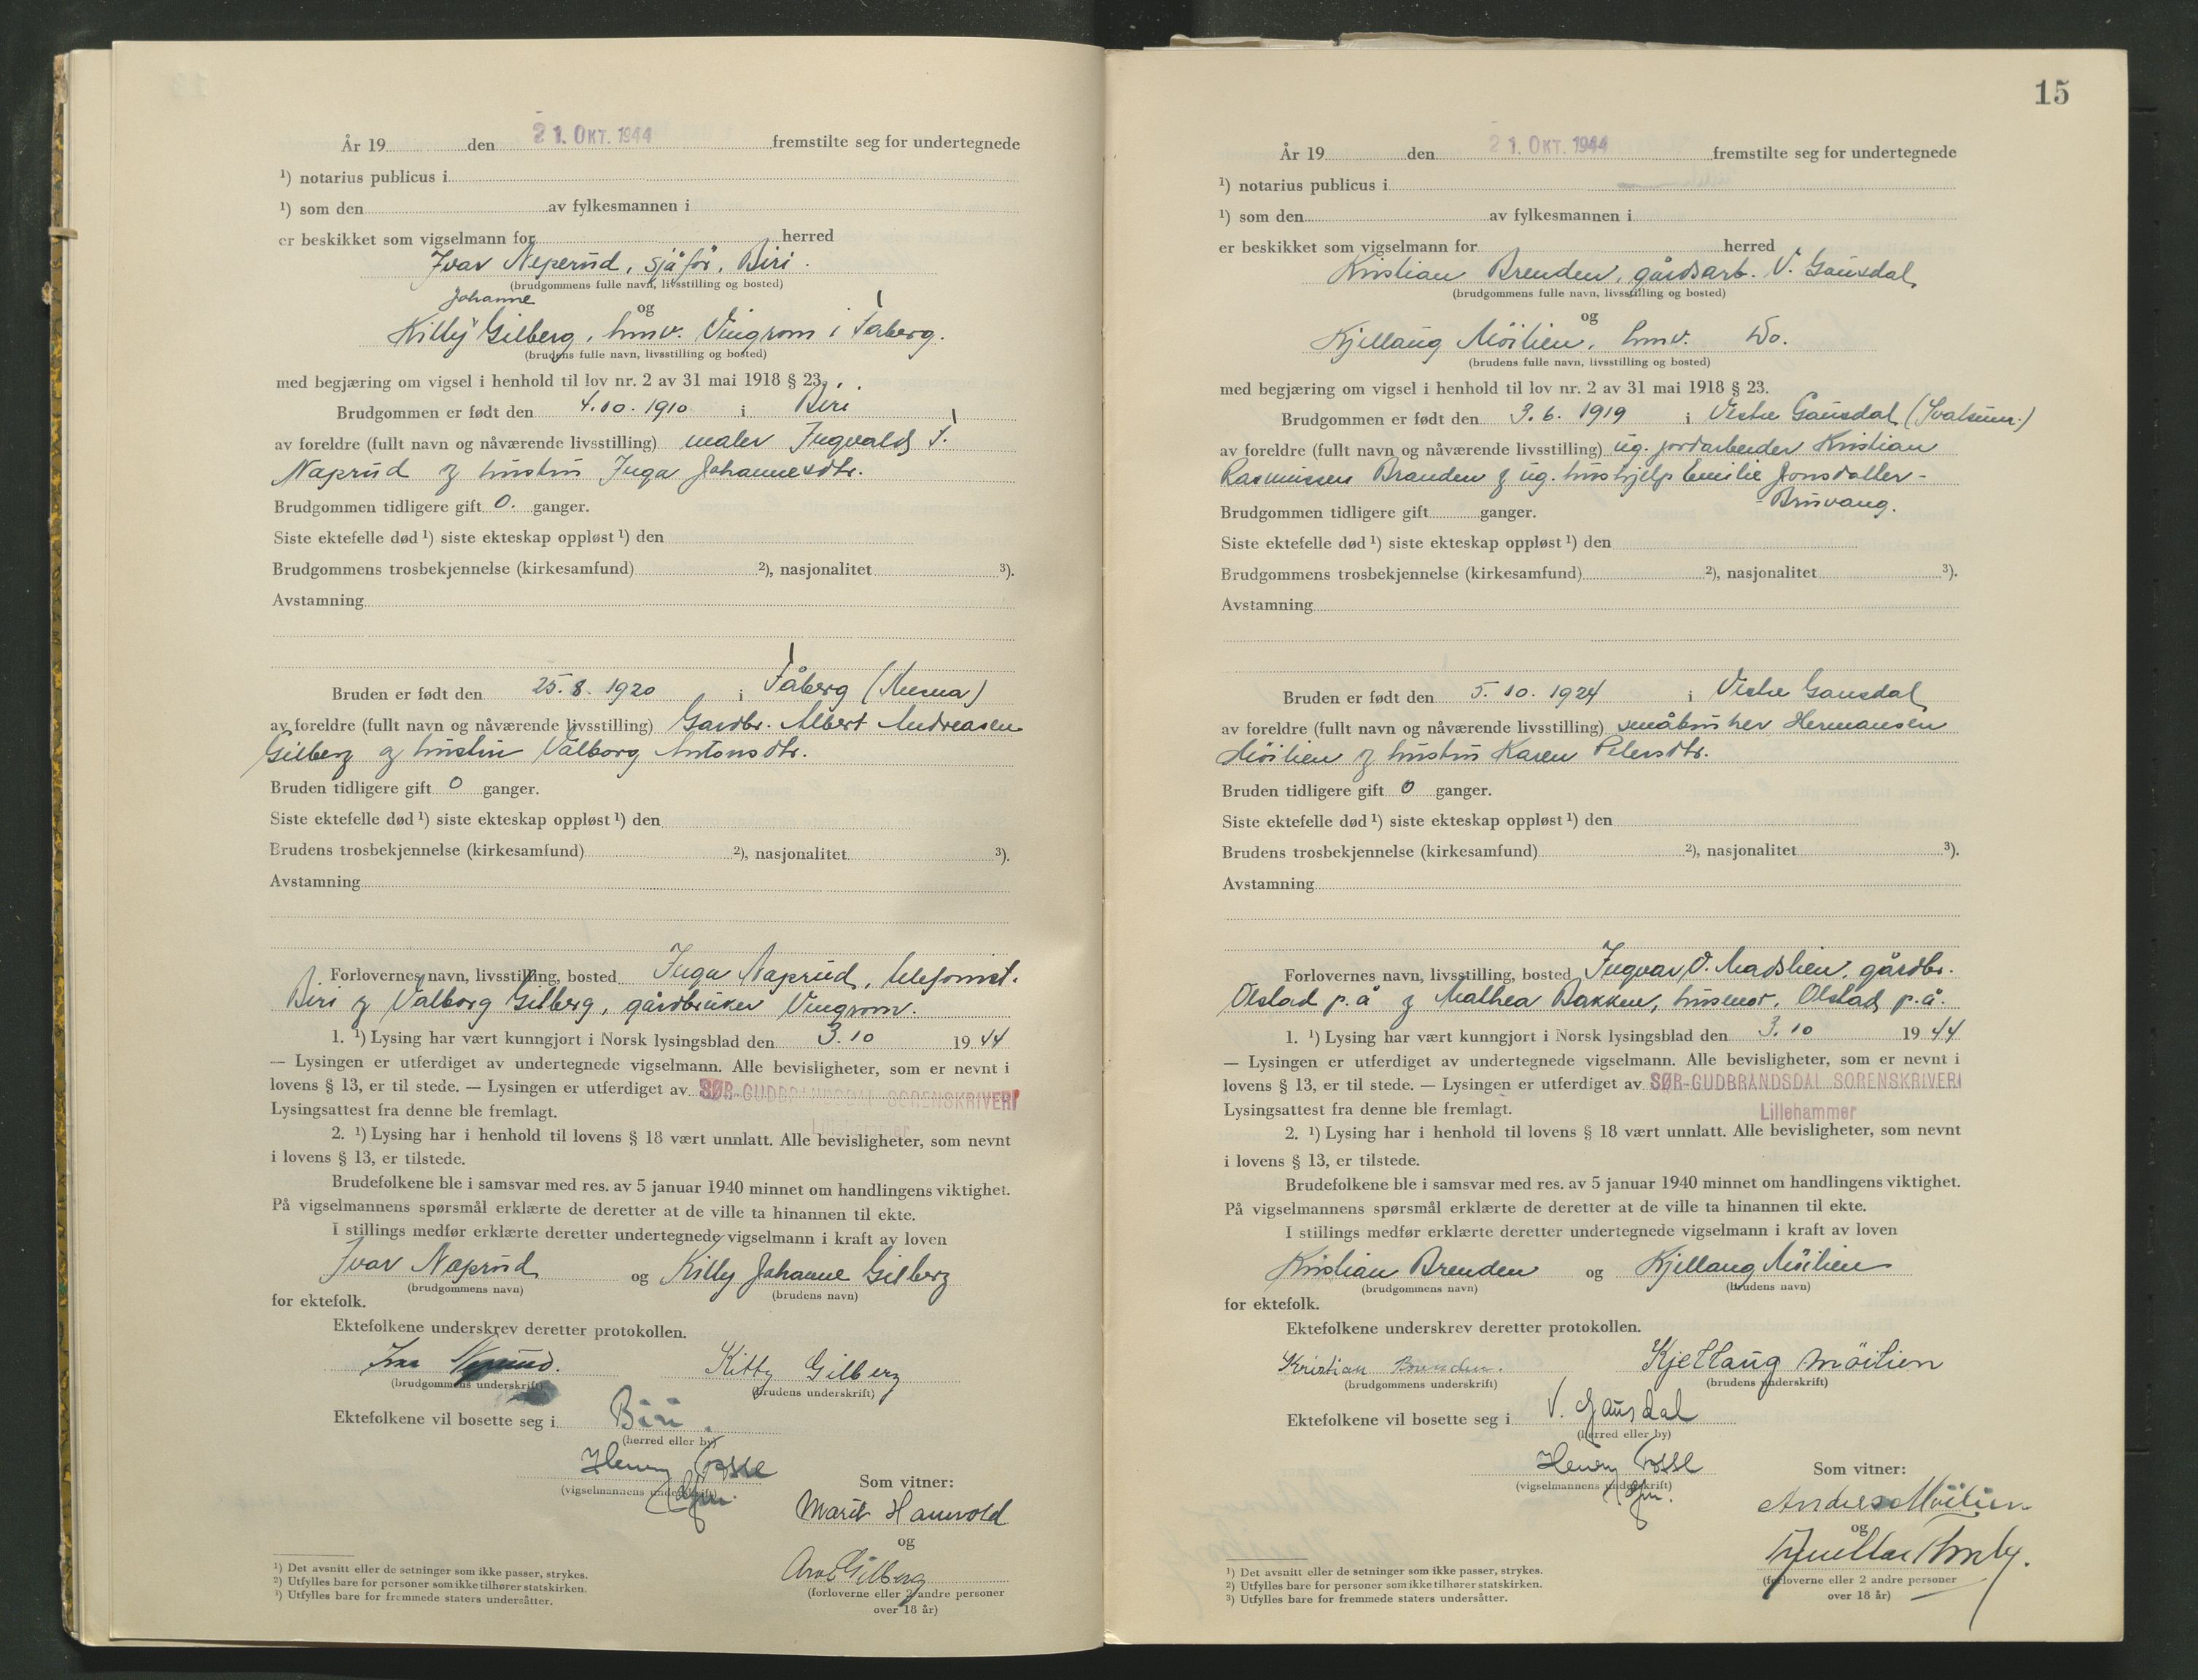 År 19 den 21. OKT. 1944 fremstilte seg for undertegnede
¹) notarius publicus i
¹) som den av fylkesmannen i
er beskikket som vigselmann for herred
Ivar Neperud, sjåfør, Biri.
(brudgommens fulle navn, livsstilling og bosted)
Johanne
og
Killy Gilberg, hmv. Vingrom i Fåberg.
(brudens fulle navn, livsstilling og bosted)
med begjæring om vigsel i henhold til lov nr. 2 av 31 mai 1918 § 23.
Brudgommen er født den 4.10.1910 i Biri
av foreldre (fullt navn og nåværende livsstilling) maler Ingvald J.
Naprud og hustru Inga Johannesdtr.
Brudgommen tidligere gift 0. ganger.
Siste ektefelle død ¹) siste ekteskap oppløst ¹) den
Brudgommens trosbekjennelse (kirkesamfund) ²), nasjonalitet ³).
Avstamning
Bruden er født den 25.8.1920 i Fåberg (Mesna)
av foreldre (fullt navn og nåværende livsstilling) Gardbr. Albert Andreasen
Gilberg og hustru Valborg Antonsdtr.
Bruden tidligere gift 0 ganger.
Siste ektefelle død ¹) siste ekteskap oppløst ¹) den
Brudens trosbekjennelse (kirkesamfund) ²), nasjonalitet ³).
Avstamning
Forlovernes navn, livsstilling, bosted Inga Naprud, telefonist.
Biri og Valborg Gilberg, gårdbruker Vingrom.
1. ¹) Lysing har vært kunngjort i Norsk lysingsblad den 3.10 1944
— Lysingen er utferdiget av undertegnede vigselmann. Alle bevisligheter, som er nevnt i
lovens § 13, er til stede. — Lysingen er utferdiget av SØR-GUDBRANDSDAL SORENSKRIVERI
Lysingsattest fra denne ble fremlagt.
Lillehammer
2. ¹) Lysing har i henhold til lovens § 18 vært unnlatt. Alle bevisligheter, som nevnt
i lovens § 13, er tilstede.
Brudefolkene ble i samsvar med res. av 5 januar 1940 minnet om handlingens viktighet.
På vigselmannens spørsmål erklærte de deretter at de ville ta hinannen til ekte.
I stillings medfør erklærte deretter undertegnede vigselmann i kraft av loven
Ivar Naprud og Killy Johanne Gilberg
(brudgommens navn) (brudens navn)
for ektefolk.
Ektefolkene underskrev deretter protokollen.
Ivar Neperud. Kitty Gilberg
(brudgommens underskrift) (brudens underskrift)
Ektefolkene vil bosette seg i Biri.
(herred eller by)
Henry Fosse
(vigselmannens underskrift)
Som vitner:
Marit Hamvold
og
Arve Gilberg
(forloverne eller 2 andre personer
over 18 år)
¹) Det avsnitt eller de setninger som ikke passer, strykes.
²) Utfylles bare for personer som ikke tilhører statskirken.
³) Utfylles bare for fremmede staters undersåtter.
15
År 19 den 21. OKT. 1944 fremstilte seg for undertegnede
¹) notarius publicus i
¹) som den av fylkesmannen i
er beskikket som vigselmann for herred
Kristian Brenden, gårdsarb. V. Gausdal
(brudgommens fulle navn, livsstilling og bosted)
og
Kjellaug Möilien, hmv. Do.
(brudens fulle navn, livsstilling og bosted)
med begjæring om vigsel i henhold til lov nr. 2 av 31 mai 1918 § 23.
Brudgommen er født den 3.6.1919 i Vestre Gausdal (Svatsum.)
av foreldre (fullt navn og nåværende livsstilling) ug. jordarbeider Kristian
Rasmussen Branden og ug. hushjelp Emilie Jonsdatter-
-Bruvang.
Brudgommen tidligere gift ganger.
Siste ektefelle død ¹) siste ekteskap oppløst ¹) den
Brudgommens trosbekjennelse (kirkesamfund) ²), nasjonalitet ³).
Avstamning
Bruden er født den 5.10.1924 i Vestre Gausdal
av foreldre (fullt navn og nåværende livsstilling) småbruker Hermansen
Möilien og hustru Karen Petersdtr.
Bruden tidligere gift 0 ganger.
Siste ektefelle død ¹) siste ekteskap oppløst ¹) den
Brudens trosbekjennelse (kirkesamfund) ²), nasjonalitet ³).
Avstamning
Forlovernes navn, livsstilling, bosted Ingvar O. Madslien, gårdbr.
Olstad p.å og Mathea Bakken, husmor, Olstad p.å.
1. ¹) Lysing har vært kunngjort i Norsk lysingsblad den 3.10 1944
— Lysingen er utferdiget av undertegnede vigselmann. Alle bevisligheter, som er nevnt i
lovens § 13, er til stede. — Lysingen er utferdiget av SØR-GUDBRANDSDAL SORENSKRIVERI
Lysingsattest fra denne ble fremlagt. Lillehammer
2. ¹) Lysing har i henhold til lovens § 18 vært unnlatt. Alle bevisligheter, som nevnt
i lovens § 13, er tilstede.
Brudefolkene ble i samsvar med res. av 5 januar 1940 minnet om handlingens viktighet.
På vigselmannens spørsmål erklærte de deretter at de ville ta hinannen til ekte.
I stiillings medfør erklærte deretter undertegnede vigselmann i kraft av loven
Kristian Brenden og Kjellaug Möilien
(brudgommens navn) (brudens navn)
for ektefolk.
Ektefolkene underskrev deretter protokollen.
Kristian Brenden. Kjellaug Möilien
(brudgommens underskrift) (brudens underskrift)
Ektefolkene vil bosette seg i V. Gausdal
(herred eller by)
Henry Fosse
(vigselmannens underskrift)
Som vitner:
Andreas Möilien
og
(forloverne eller 2 andre personer
over 18 år)
¹) Det avsnitt eller de setninger som ikke passer, strykes.
²) Utfylles bare for personer som ikke tilhører statskirken.
³) Utfylles bare for fremmede staters undersåtter.